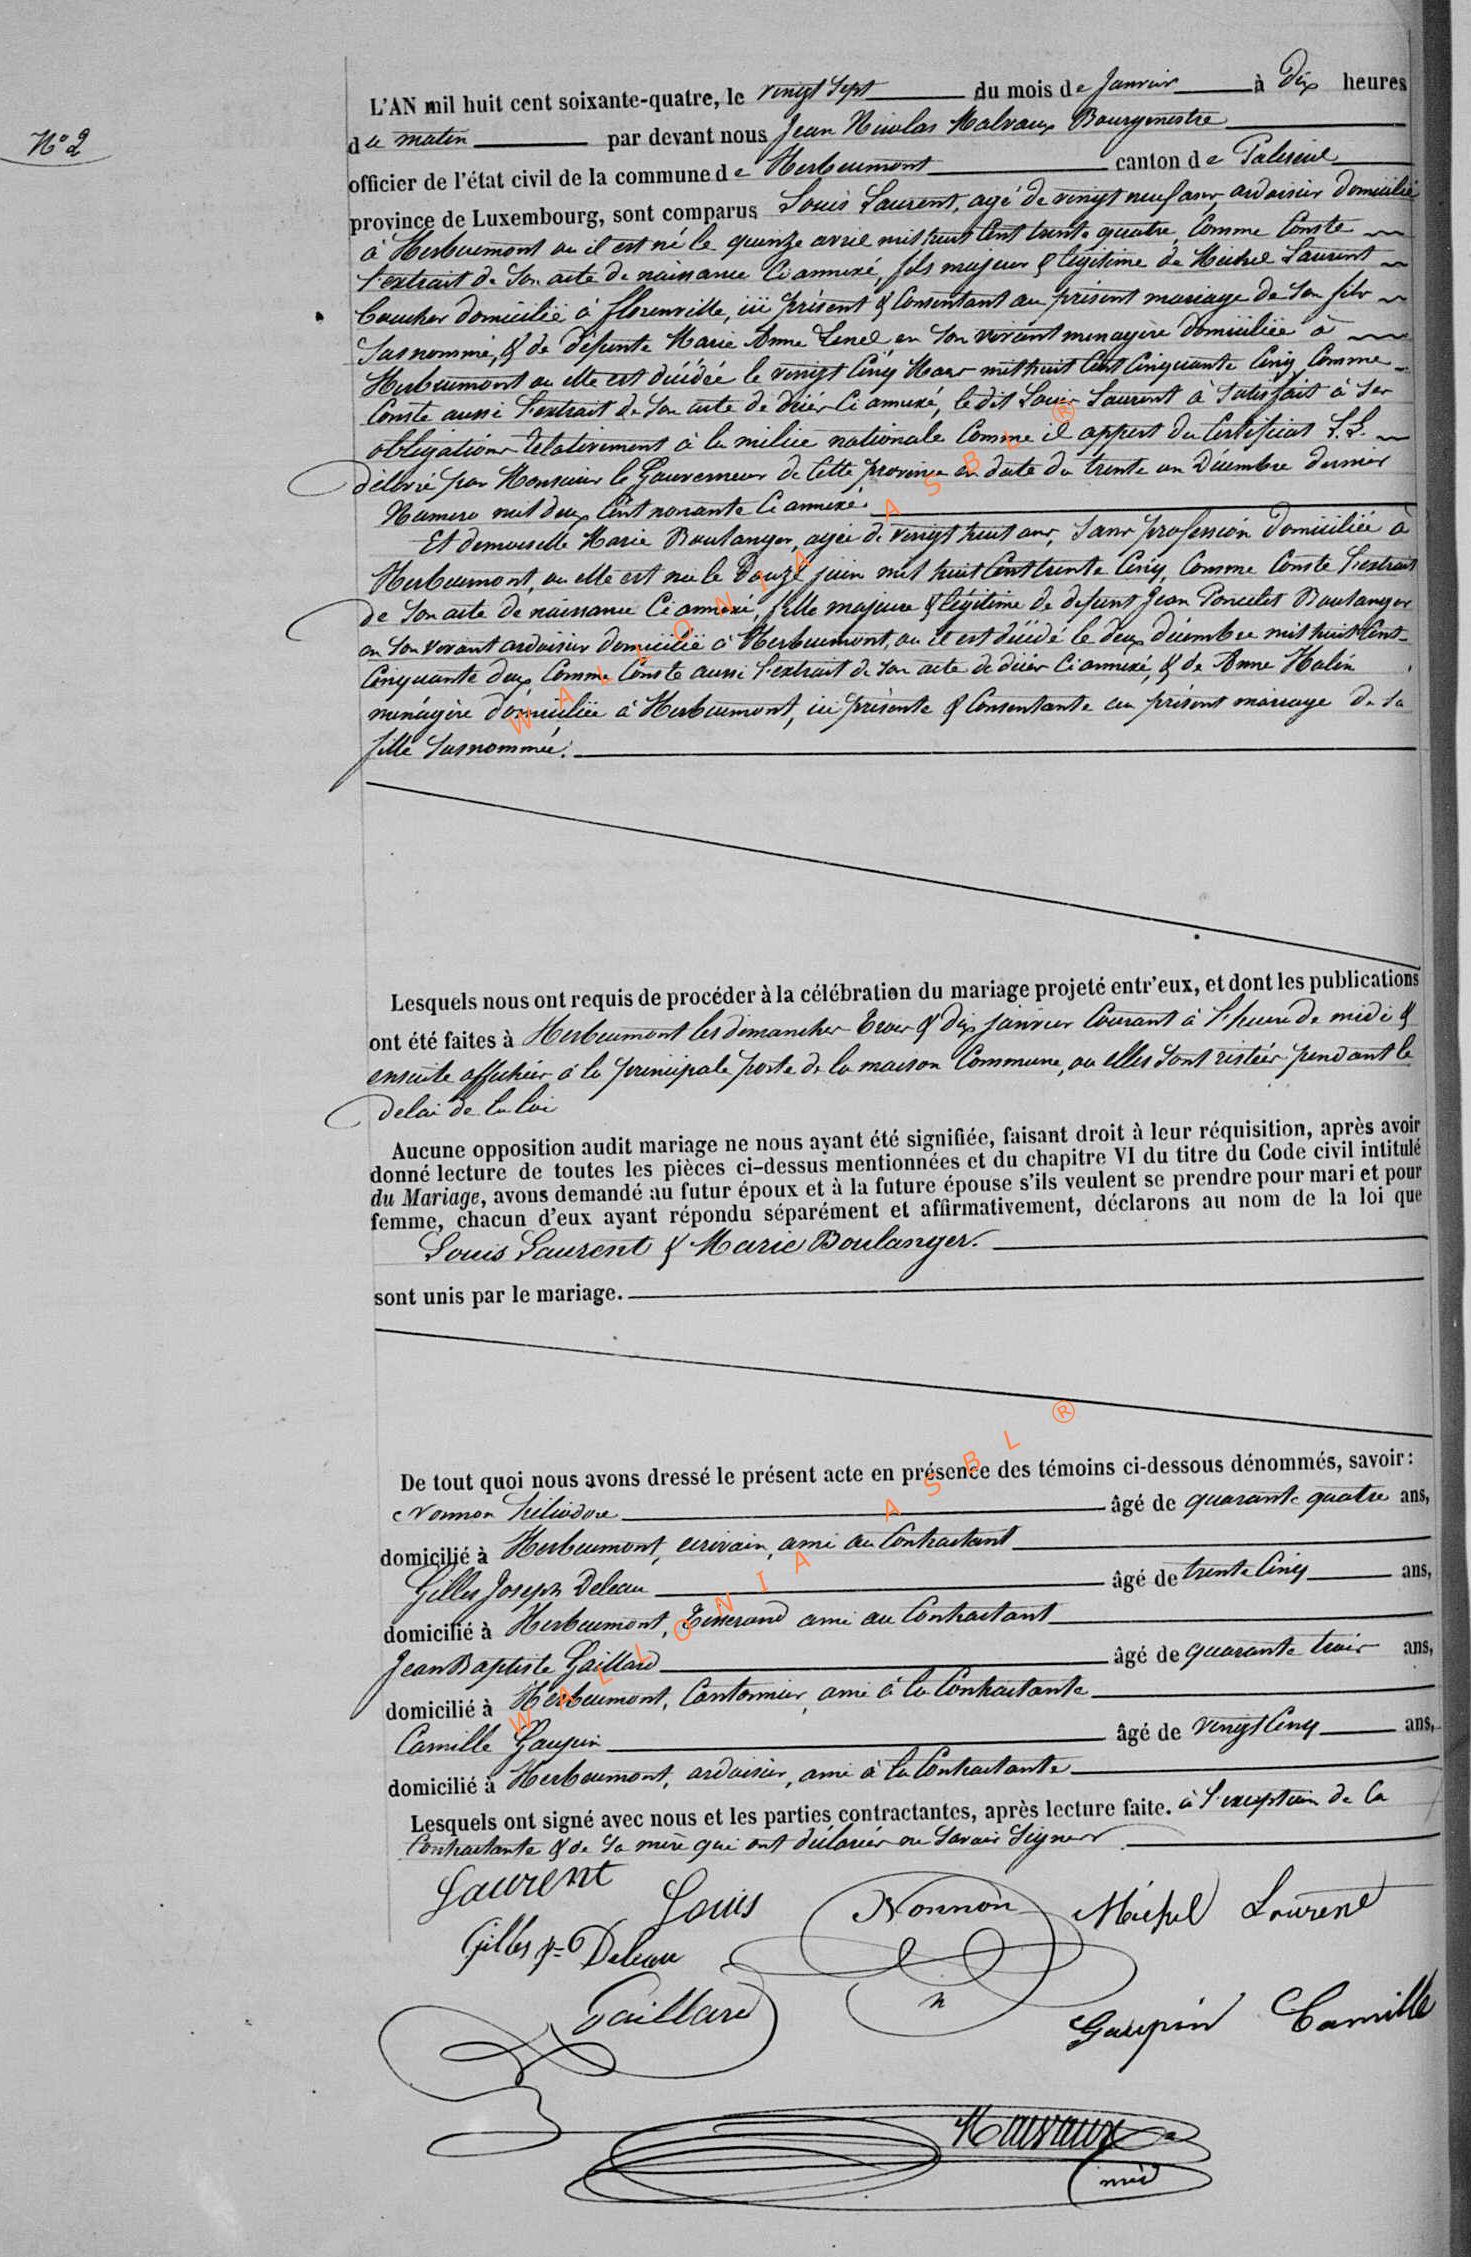 N° 2
L'AN mil huit cent soixante-quatre, le vingt sept du mois de Janvier à dix heures
du matin par devant nous Jean Nicolas Malvaux Bourgmestre
officier de l'état civil de la commune de Herbeumont canton de Paliseul
province de Luxembourg, sont comparus Louis Laurent, agé de vingt neuf ans, ardoisier domicilié
à Herbeumont ou il est né le quinze avril mil huit Cent trente quatre, Comme Conste
l'extrait de Son acte de naissance Ci annexé, fils majeur & légitime de Michel Laurent
boucher domicilié à florenville, ici présent & Consentant au présent mariage de Son fils
Susnommé, & de défunte Marie Anne Zenel en Son vivant menagère domiciliée à
Herbeumont ou elle est décédée le vingt Cinq Mars mil huit Cent Cinquante Cinq, Comme
Conste aussi l'extrait de Son acte de décès Ci annexé, le dit Louis Laurent à Satisfait à Ses
obligations relativement à la milice nationale Comme il appert du Certificat L.L.
délivré par Monsieur le Gouverneur de Cette province en date du trente un Décembre dernier
Numero mil deux Cent nonante Ci annexé.
Et demoiselle Marie Boulanger, agée de vingt huit ans, Sans profession domiciliée à
Herbeumont, ou elle est née le Douze juin mil huit Cent trente Cinq, Comme Conste l'extrait
de Son acte de naissance Ci annexé, fille majeure & légitime de defunt Jean Poncelet Boulanger
en Son vivant ardoisier domicilié à Herbeumont, ou il est décédé le deux décembre mil huit Cent
Cinquante deux Comme Conste aussi l'extrait de Son acte de décès Ci annexé, & de Anne Halin
menagère domiciliée à Herbeumont, ici présente & Consentante au présent mariage de Sa
fille Susnommée.
Lesquels nous ont requis de procéder à la célébration du mariage projeté entr'eux, et dont les publications
ont été faites à Herbeumont les dimanches trois & dix janvier Courant à l'heure de midi &
ensuite affichées à la principale porte de la maison Commune, ou elles Sont restées pendant le
delai de la loi
Aucune opposition audit mariage ne nous ayant été signifiée, faisant droit à leur réquisition, après avoir
donné lecture de toutes les pièces ci-dessus mentionnées et du chapitre VI du titre du Code civil intitulé
du Mariage, avons demandé au futur époux et à la future épouse s'ils veulent se prendre pour mari et pour
femme, chacun d'eux ayant répondu séparément et affirmativement, déclarons au nom de la loi que
Louis Laurent & Marie Boulanger.
sont unis par le mariage.
De tout quoi nous avons dressé le présent acte en présence des témoins ci-dessous dénommés, savoir :
Nonnon héliodore âgé de quarante quatre ans,
domicilié à Herbeumont, ecrivain, ami au Contractant
Gilles Joseph Deleau âgé de trente Cinq ans,
domicilié à Herbeumont, Tisserand ami au Contractant
Jean Baptiste Gaillard âgé de quarante trois ans,
domicilié à Herbeumont, Cantonnier, ami à la Contractante
Camille Gaupin âgé de vingt Cinq ans,
domicilié à Herbeumont, ardoisier, ami à la Contractante
Lesquels ont signé avec nous et les parties contractantes, après lecture faite. à l'exception de la
Contractante & de Sa mère qui ont déclarés ne Savoir Signer
Laurent Louis Nonnon Michel Laurent
Gilles Deleau
Gaillard Gaupin Camille
Malvaux
WALLONIA ASBL ®
WALLONIA ASBL ®